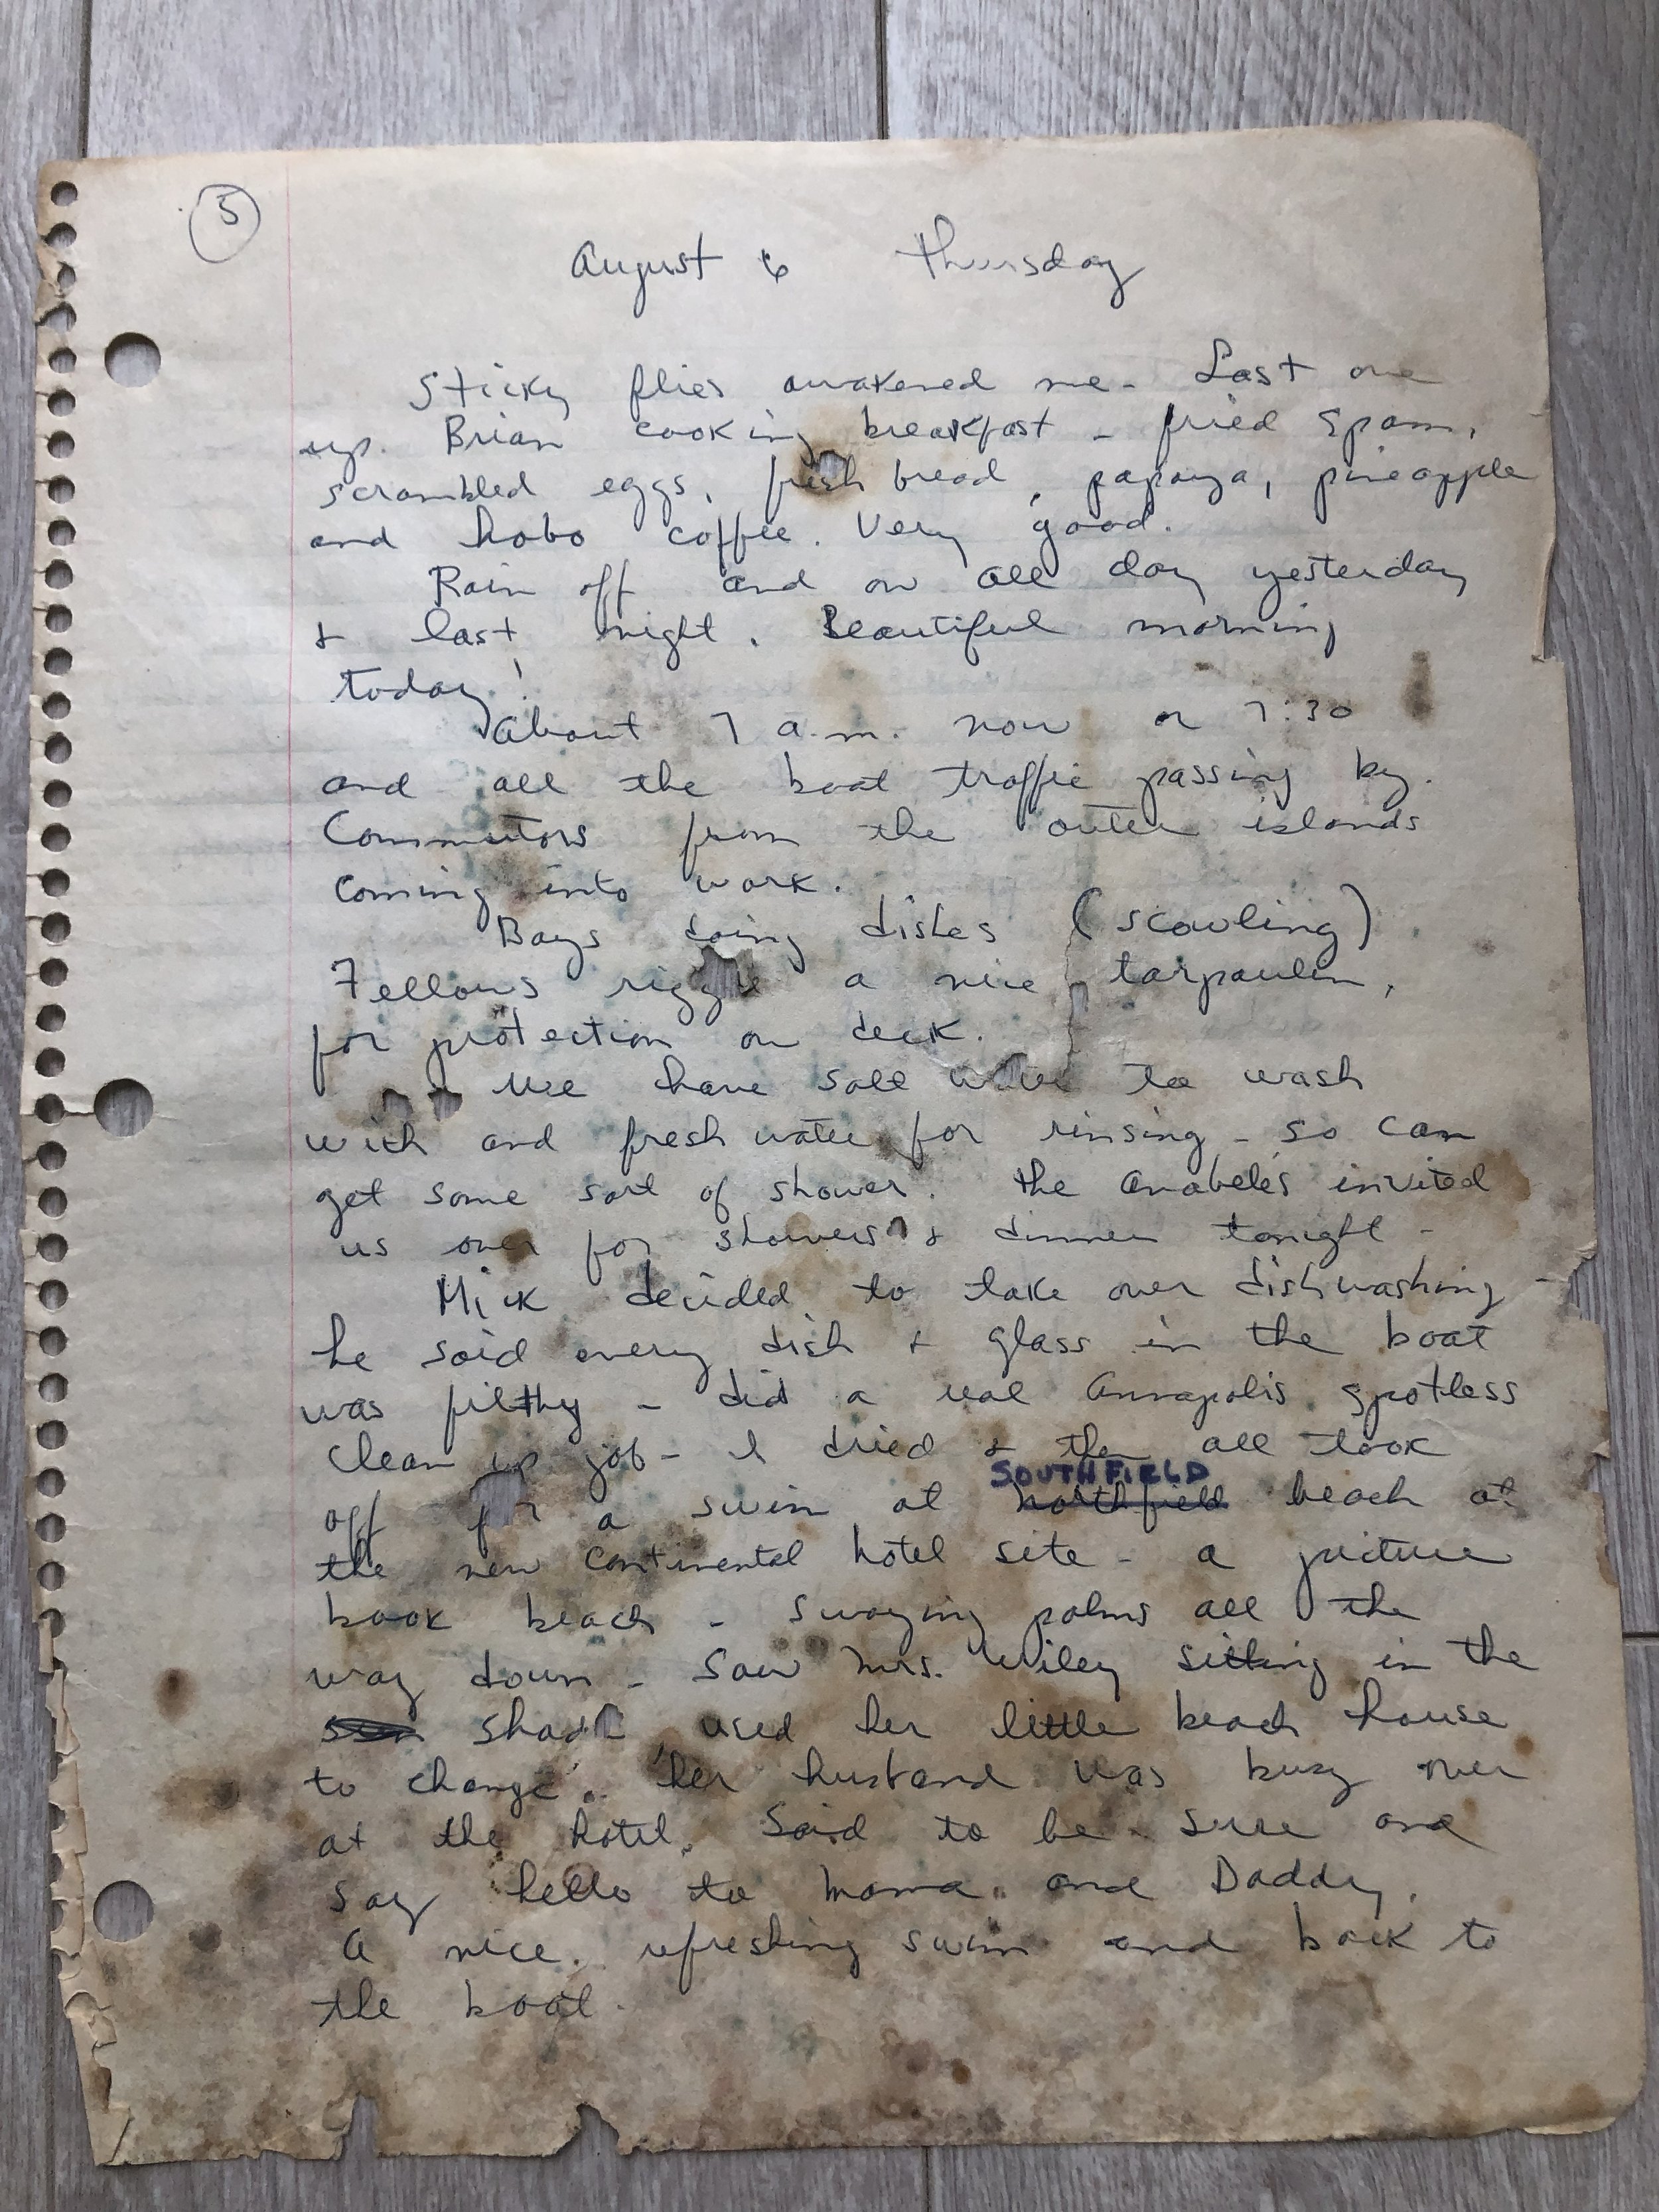 5
August 6 Thursday
Sticky flies awakened me - Last one
up. Brian cooking breakfast - fried Spam,
scrambled eggs, fresh bread, papaya, pineapple
and hobo coffee. Very good.
Rain off and on all day yesterday
& last night. Beautiful morning
today!
About 7 a.m. now or 7:30
and all the boat traffic passing by.
Commutors from the outer islands
coming into work.
Boys doing dishes (scowling)
Fellows a nice tarpaulin,
for protection on deck.
We have salt to wash
with and fresh water for rinsing - so can
get some sort of shower. The Anabele's invited
us over for showers & dinner tonight -
Mick decided to take over dishwashing -
he said every dish & glass in the boat
was filthy - did a real Annapolis spotless
clean up job - I dried & then all took
SOUTHFIELD
off for a swim at northfield beach at
the new Continental hotel site - a picture
book beach - swaying palms all the
way down - Saw Mrs. Wiley sitting in the
sun shade used her little beach house
to change. her husband was busy over
at the hotel. Said to be sure and
say hello to Mama and Daddy.
A nice refreshing swim and back to
the boat.